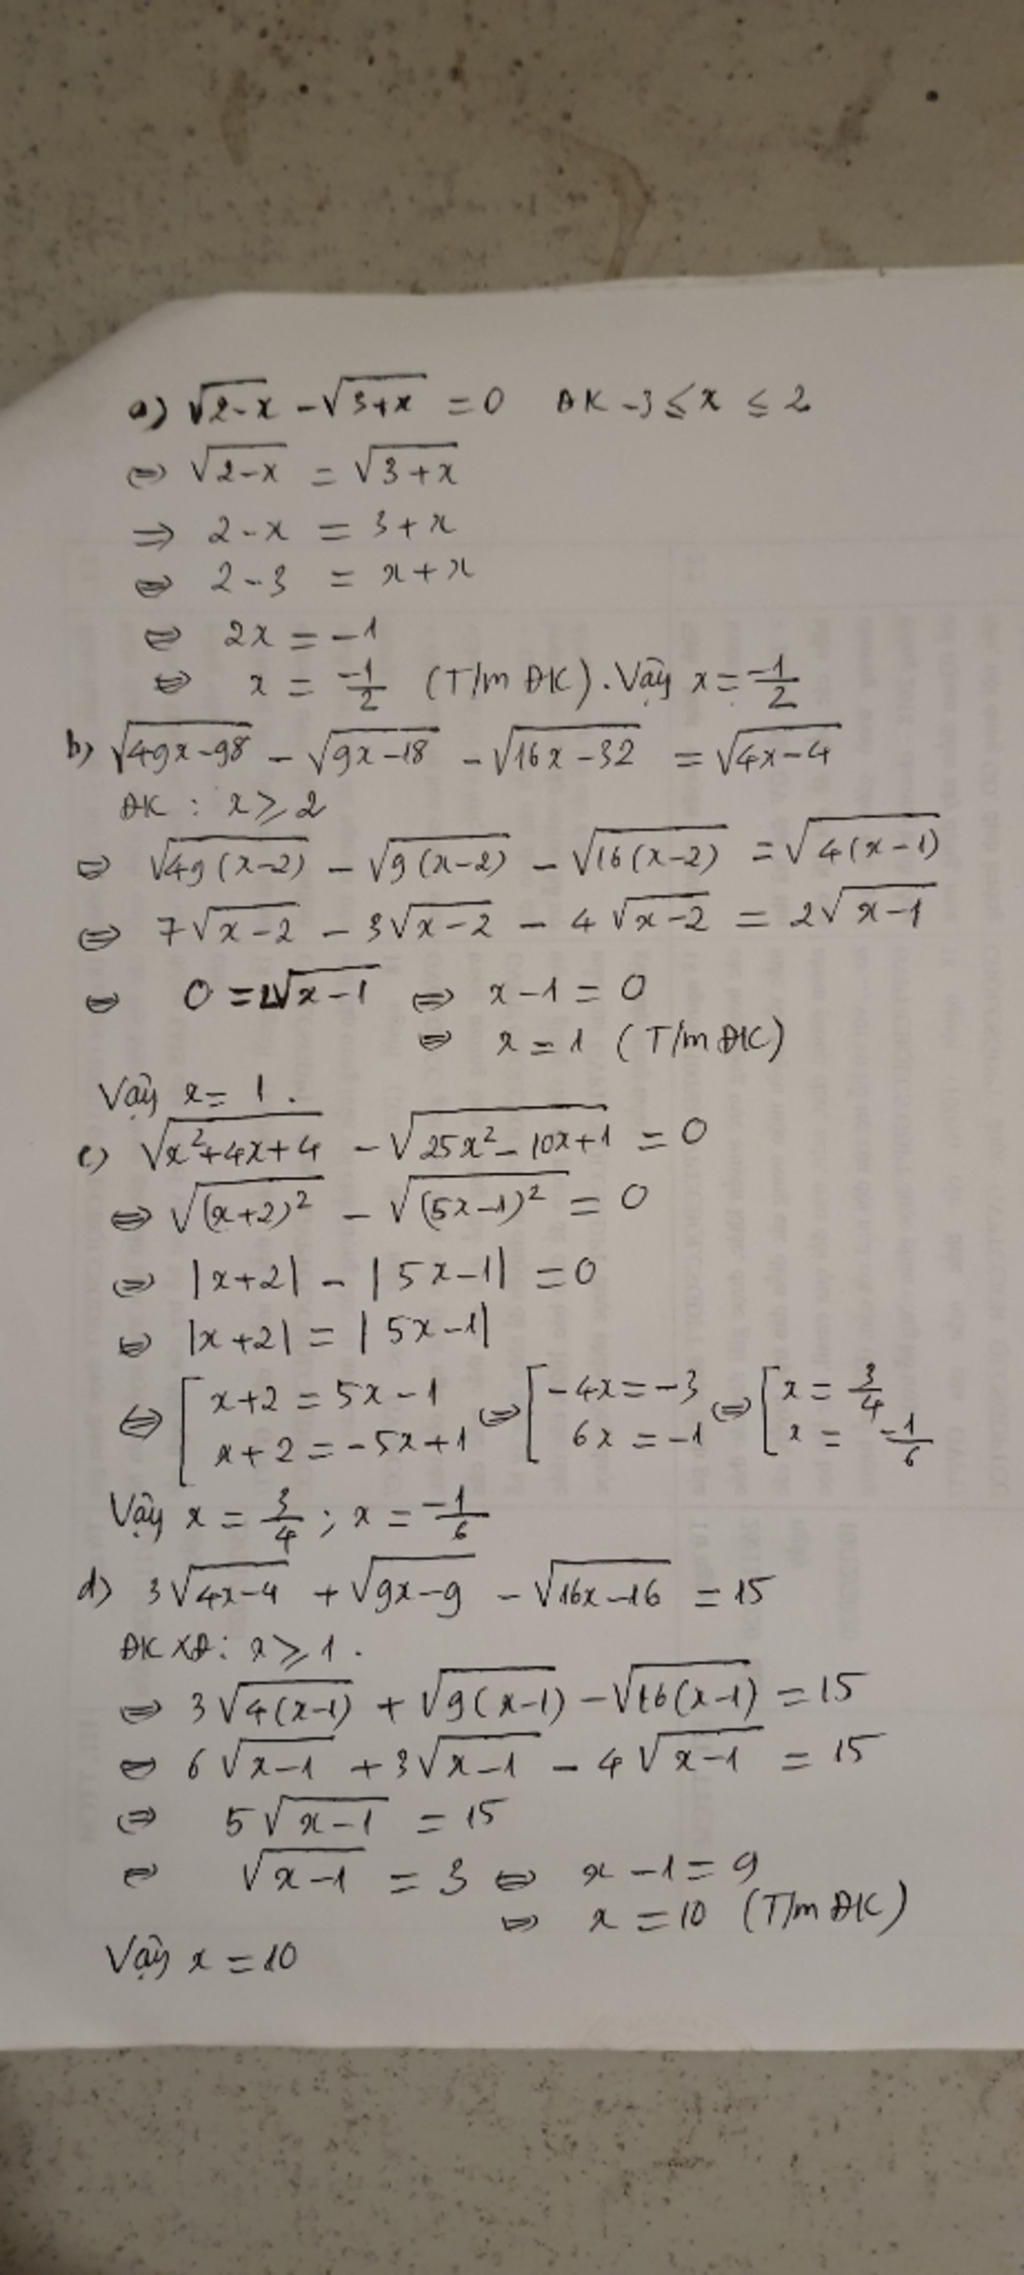 a) √(2-x) - √(3+x) = 0 ĐK -3 ≤ x ≤ 2
⇔ √(2-x) = √(3+x)
⇒ 2-x = 3+x
⇔ 2-3 = x+x
⇔ 2x = -1
⇔ x = -1/2 (T/m ĐK). Vậy x = -1/2
b) √(49x-98) - √(9x-18) - √(16x-32) = √(4x-4)
ĐK : x ≥ 2
⇔ √(49(x-2)) - √(9(x-2)) - √(16(x-2)) = √(4(x-1))
⇔ 7√(x-2) - 3√(x-2) - 4√(x-2) = 2√(x-1)
⇔ 0 = 2√(x-1) ⇔ x-1 = 0
⇔ x = 1 (T/m ĐK)
Vậy x = 1.
c) √(x²+4x+4) - √(25x²-10x+1) = 0
⇔ √((x+2)²) - √((5x-1)²) = 0
⇔ |x+2| - |5x-1| = 0
⇔ |x+2| = |5x-1|
⇔ [ x+2 = 5x-1 ⇔ [ -4x = -3 ⇔ [ x = 3/4
x+2 = -5x+1 6x = -1 x = -1/6
Vậy x = 3/4 ; x = -1/6
d) 3√(4x-4) + √(9x-9) - √(16x-16) = 15
ĐKXĐ: x ≥ 1.
⇔ 3√(4(x-1)) + √(9(x-1)) - √(16(x-1)) = 15
⇔ 6√(x-1) + 3√(x-1) - 4√(x-1) = 15
⇔ 5√(x-1) = 15
⇔ √(x-1) = 3 ⇔ x-1 = 9
⇔ x = 10 (T/m ĐK)
Vậy x = 10